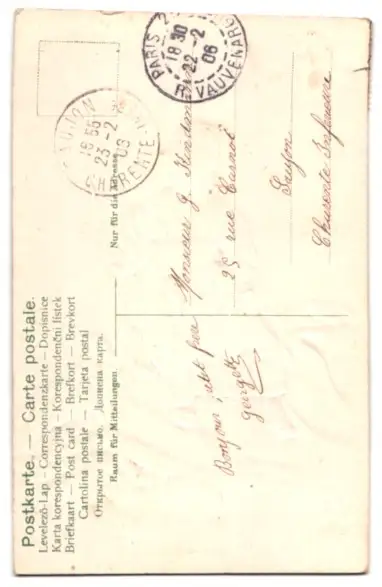 Postkarte. — Carte postale.
Levelező-Lap. - Correspondenzkarte - Dopisnice
Karta korespondencyjna - Korespondenčni lístek
Briefkaart — Post card — Brefkort — Brevkort
Cartolina postale — Tarjeta postal
Открытое письмо. Дописна карта.
Raum für Mitteilungen.
Nur für die Adresse
PARIS 2
18 30
22 - 2
06
R. VAUVENARG
SAUJON
18 55
23 - 2
06
CH RENTE
Monsieur G.
25 rue Carnot
Saujon
Charente Inférieure
Bonjour petit frère